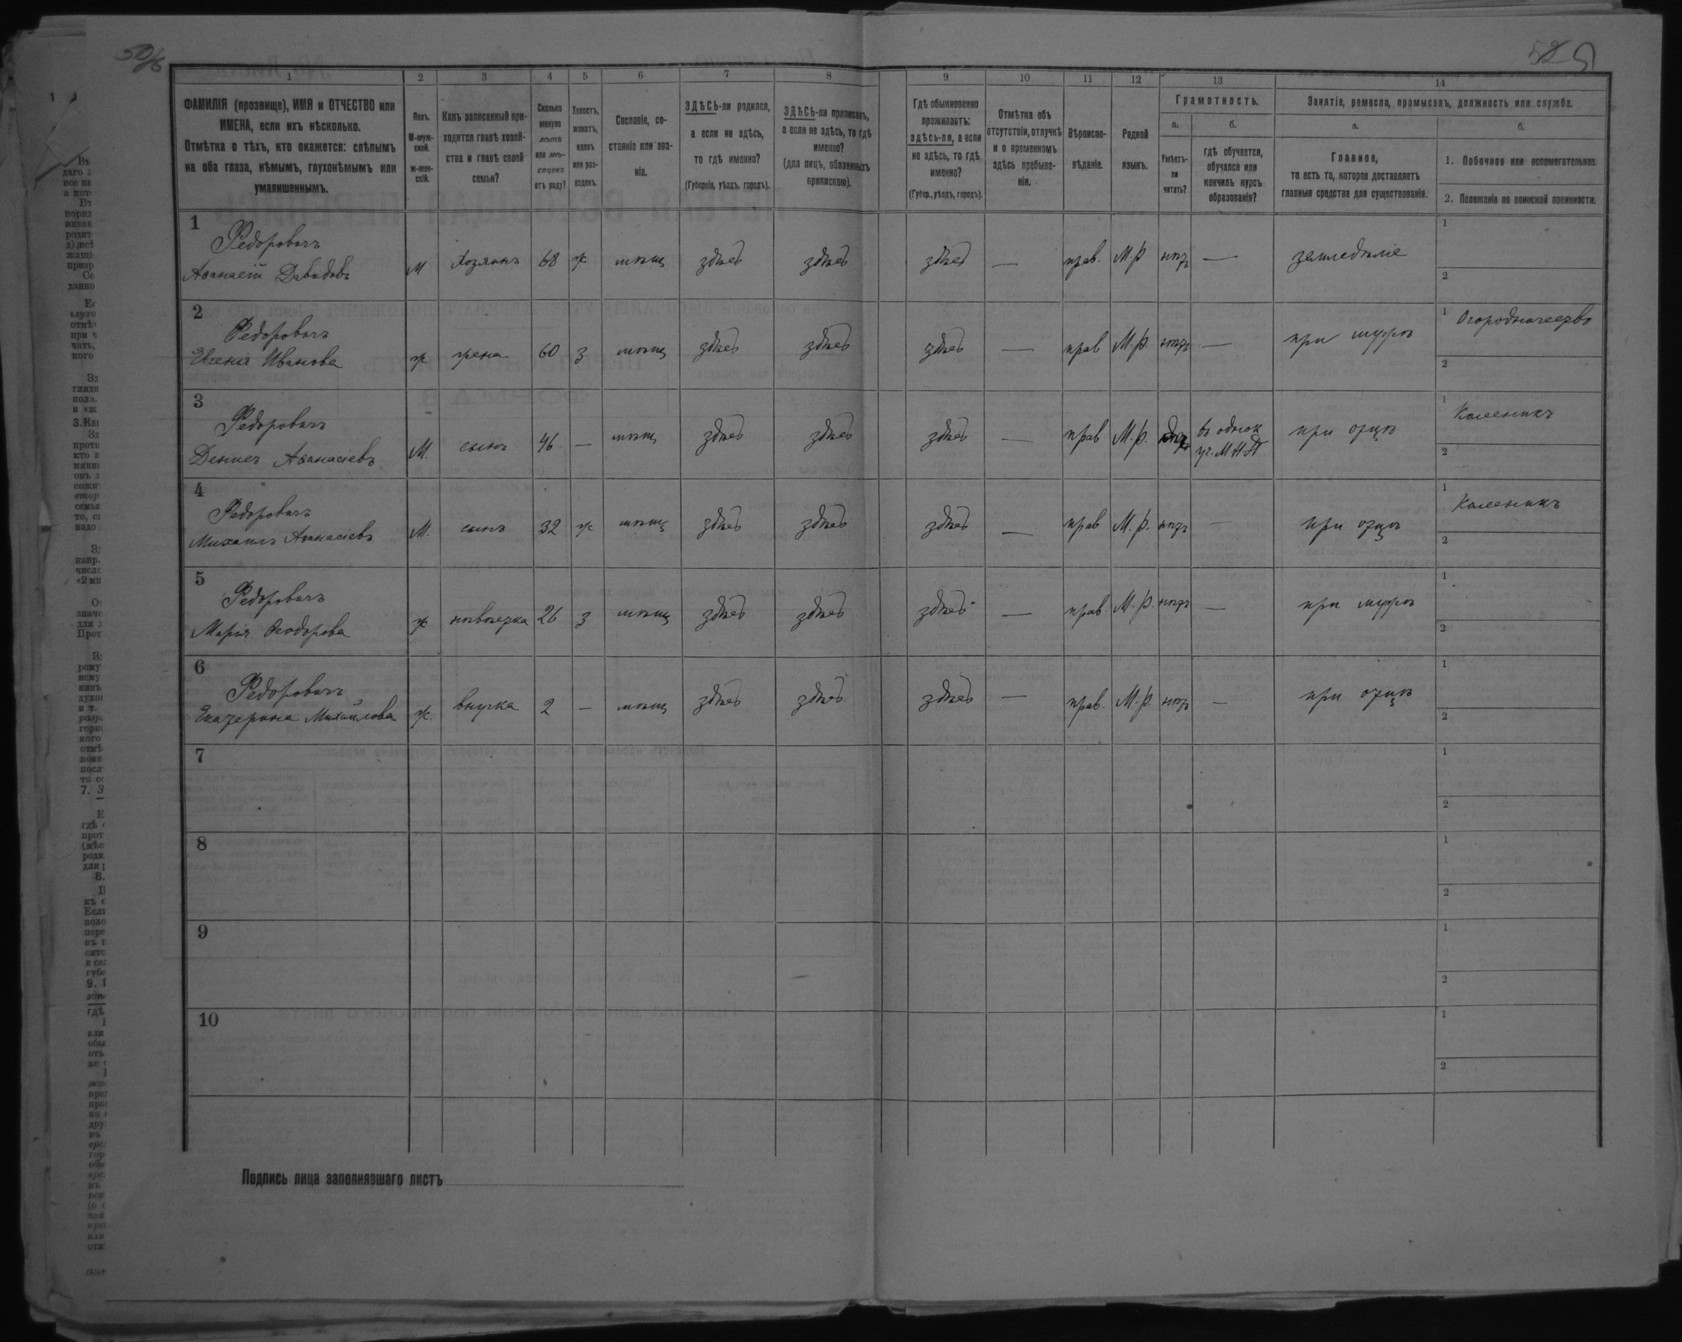 1 2 3 4 5 6 7 8 9 10 11 12 13 14
ФАМИЛІЯ (прозвище), ИМЯ и ОТЧЕСТВО или
ИМЕНА, если ихъ нѣсколько.
Отмѣтка о тѣхъ, кто окажется: слѣпымъ
на оба глаза, нѣмымъ, глухонѣмымъ или
умалишеннымъ.
Полъ.
М-муж-
ской.
ж-жен-
скій.
Какъ записанный при-
ходится главѣ хозяй-
ства и главѣ своей
семьи?
Сколько
минуло
лѣтъ
или мѣ-
сяцевъ
отъ роду?
Холостъ,
женатъ,
вдовъ
или раз-
веденъ.
Сословіе, со-
стояніе или зва-
ніе.
ЗДѢСЬ-ли родился,
а если не здѣсь,
то гдѣ именно?
(Губернія, уѣздъ, городъ).
ЗДѢСЬ-ли приписанъ,
а если не здѣсь, то гдѣ
именно?
(для лицъ, обязанныхъ
припискою).
Гдѣ обыкновенно
проживаетъ:
здѣсь-ли, а если
не здѣсь, то гдѣ
именно?
(Губер., уѣздъ, городъ).
Отмѣтка объ
отсутствіи, отлучкѣ
и о временномъ
здѣсь пребыва-
ніи.
Вѣроиспо-
вѣданіе.
Родной
языкъ.
Грамотность.
а.
Умѣетъ-
ли
читать?
б.
гдѣ обучается,
обучался или
кончилъ курсъ
образованія?
Занятіе, ремесло, промыселъ, должность или служба.
а.
Главное,
то есть то, которое доставляетъ
главныя средства для существованія.
б.
1. Побочное или вспомогательное.
2. Положеніе по воинской повинности.
1
Федоровичъ
Афанасій Давидовъ М Хозяинъ 68 ж мѣщ здѣсь здѣсь здѣсь — прав. М.р. нѣтъ — земледѣліе
1
2
2
Федоровичъ
Евгенія Иванова ж жена 60 з мѣщ здѣсь здѣсь здѣсь — прав М.р. нѣтъ — при мужѣ
1 Огородничество
2
3
Федоровичъ
Денисъ Афанасіевъ М. сынъ 46 — мѣщ здѣсь здѣсь здѣсь — прав М.р.
при отцѣ
1 Каменщикъ
2
4
Федоровичъ
Михаилъ Афанасіевъ М. сынъ 32 ж мѣщ здѣсь здѣсь здѣсь — прав М.р. нѣтъ — при отцѣ
1 Каменщикъ
2
5
Федоровичъ
Марія Феодорова ж невѣстка 26 з мѣщ здѣсь здѣсь здѣсь — прав М.р. нѣтъ — при мужѣ
1
2
6
Федоровичъ
Екатерина Михайлова ж. внучка 2 — мѣщ здѣсь здѣсь здѣсь — прав. М.р. нѣтъ — при отцѣ
1
2
7
1
2
8
1
2
9
1
2
10
1
2
Подпись лица заполнявшаго листъ